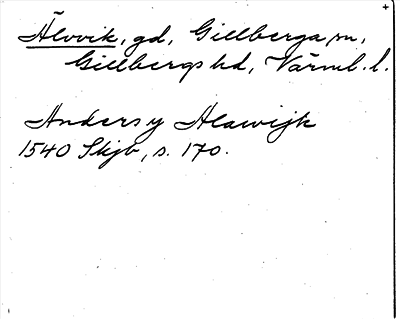 +
Älvvik, gd, Gillberga sn,
Gillbergs hd, Värml. l.
Anders y Alawijk
1540 Skjb, s. 170.